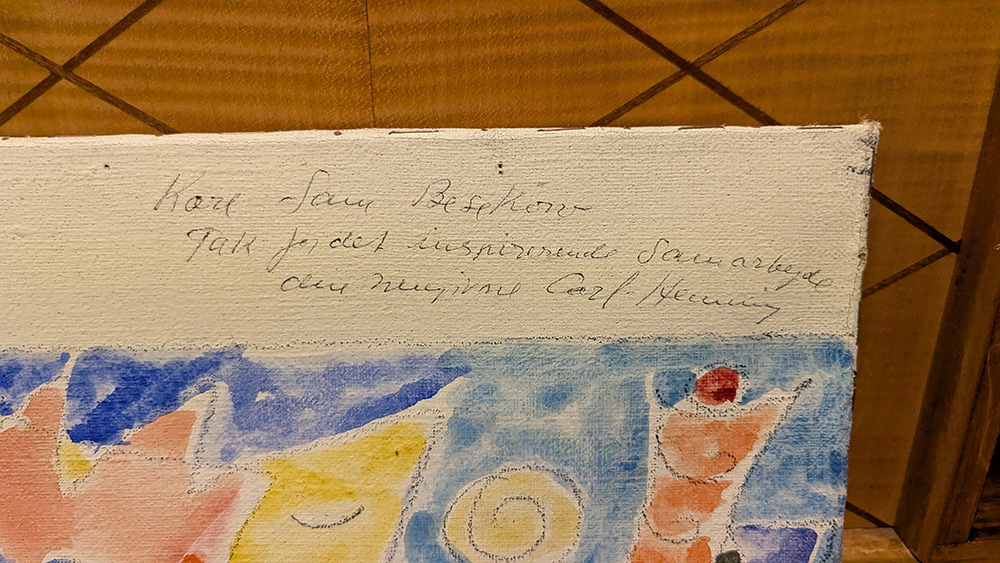 Kære Sam Besekow
Tak for det inspirerende Samarbejde
din Carl-Henning